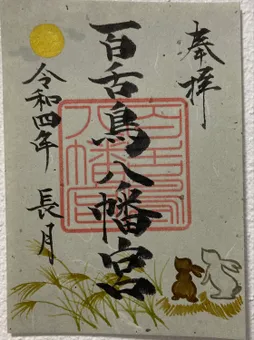 奉拝
百舌鳥八幡宮
令和四年 長月
百舌鳥八幡宮